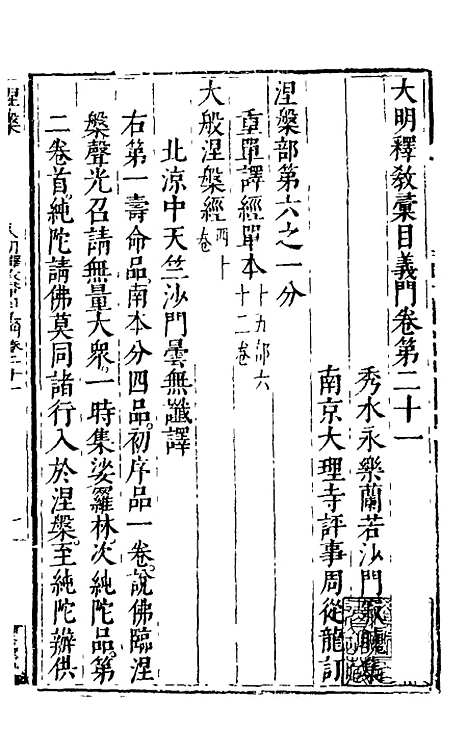 大明釋教彙目義門卷第二十一
秀水永樂蘭若沙門 寂曉集
南京大理寺評事周從龍訂
涅槃部第六之一分
重單譯經單本 十九部六十二卷
大般涅槃經 四十卷
北涼中天竺沙門曇無讖譯
右第一壽命品南本分四品初序品一卷說佛臨涅
槃聲光召請無量大衆一時集娑羅林次純陀品第
二卷首純陀請佛莫同諸行入於涅槃至純陀辦供
涅槃